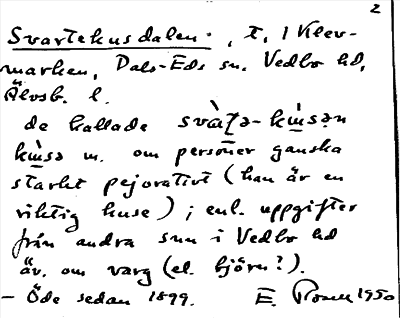 2
Svartekusdalen , t. i Klev-
marken, Dals-Eds sn. Vedbo hd,
Älvsb. l.
de kallade svàʈə-kɯ̀sən
kɯ̀sə m. om personer ganska
starkt pejorativt (han är en
riktig kuse); enl. uppgifter
från andra snn i Vedbo hd
äv. om varg (el. björn?).
– Öde sedan 1899. E. Rosell 1950